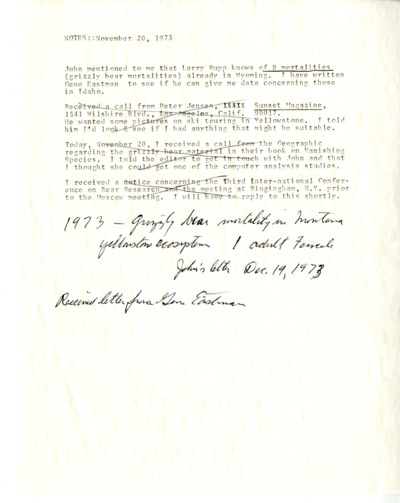 NOTES::November 20, 1973
John mentioned to me that Larry Rupp knows of 9 mortalities
(grizzly bear mortalities) already in Wyoming. I have written
Gene Eastman to see if he can give me data concerning those
in Idaho.
Received a call from Peter Jensen, Sunset Magazine,
1541 Wilshire Blvd., Los Angeles, Calif. 90017.
He wanted some pictures on ski touring in Yellowstone. I told
him I'd look & see if I had anything that might be suitable.
Today, November 20, I received a call from the Geographic
regarding the grizzly bear material in their book on Vanishing
Species. I told the editor to get in touch with John and that
I thought she could get one of the computer analysis studies.
I received a notice concerning the Third Inter-national Confer-
ence on Bear Research and the meeting at Bingingham, N.Y. prior
to the Moscow meeting. I will have to reply to this shortly.
1973 — Grizzly bear mortality in Montana
Yellowstone ecosystem 1 adult Female
John's letter Dec. 19, 1973
Received letter from Gene Eastman